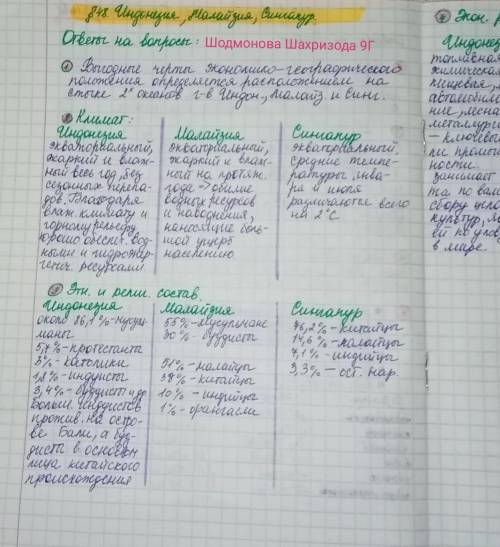 §48. Индонезия, Малайзия, Сингапур.
Ответы на вопросы: Шодмонова Шахризода 9Г
① Выгодные черты экономико-географического
положения определяется расположением на
стыке 2х океанов г-в Индон., Малайз. и Синг.
② Климат:
Индонезия
экваториальный,
жаркий и влаж-
ный весь год, без
сезонных перепа-
дов. Благодаря
влаж. климату и
горному рельефу,
хорошо обеспеч. вод-
ными и гидроэнер-
гетич. ресурсами
Малайзия
экваториальный,
жаркий и влаж-
ный на протяж.
года => обилие
водных ресурсов
и наводнения,
наносящие боль-
шой ущерб
населению
Сингапур
экваториальный.
Средние темпе-
ратуры янва-
ря и июля
различаются всего
на 2°С
③ Эт. и религ. состав.
Индонезия
около 86,1%-мусуль-
мане
5,7%-протестанты
3%-католики
1,8%-индуисты
3,4%-буддисты и др.
Больш. индуистов
прожив. на остро-
ве Бали, а буд-
дисты в основном
лица китайского
происхождения
Малайзия
55%-мусульмане
30%-буддисты
51%-малайцы
38%-китайцы
10%-индийцы
1%-орангасли
Сингапур
76,2%-китайцы
14,6%-малайцы
7,1%-индийцы
3,3%-ост. нар.
Экон. р
Индонез
топливная
химическая
пищевая, л
автомобиле
ние,
металлург
- ключевые
ли промы
ности.
занимает
та по вал
сбору
культур,
ей по улов
в мире.